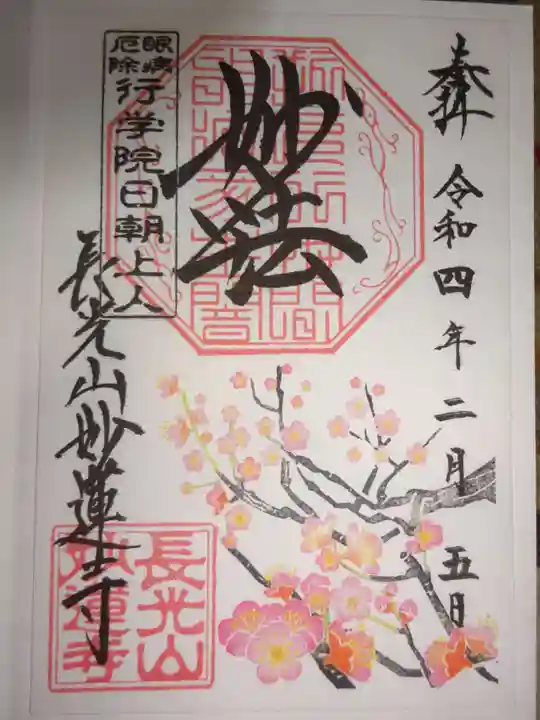 奉拝
令和四年二月五日
妙法
眼病
厄除
行学院日朝上人
長光山妙蓮寺
長光山
妙蓮寺